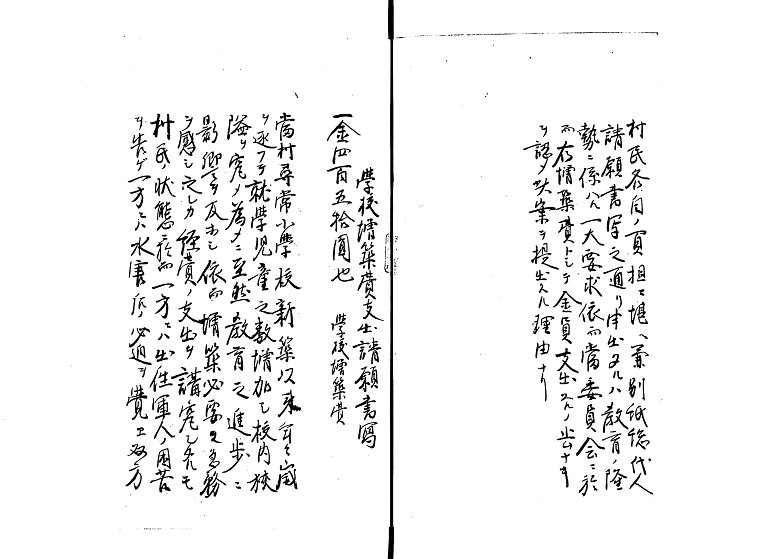 村民各自ノ負担ニ堪ヘ兼別紙総代人
請願書写之通リ申出タルハ教育ノ隆
勢ニ係ハル一大要求依而当委員会ニ於
而右増築費トシテ金員支出スルノ止ムナキ
ヲ認メ此案ヲ提出スル理由ナリ
学校増築費支出請願書写
一金四百五拾圓也　学校増築費
當村尋常小学校新築以来年々歳
ヲ逐フテ就学児童之数増加シ校内狭
隘ヲ究ノ為メニ至然教育之進歩ニ
影響ヲ及ホシ依而増築必要之急務
ヲ感シ之レカ経費ノ支出ヲ講究シタルモ
村民ノ状態於而一方ニハ出征軍人ノ困苦
ヲ告ケ一方ニハ水害ノ必迫ヲ覚エ双方